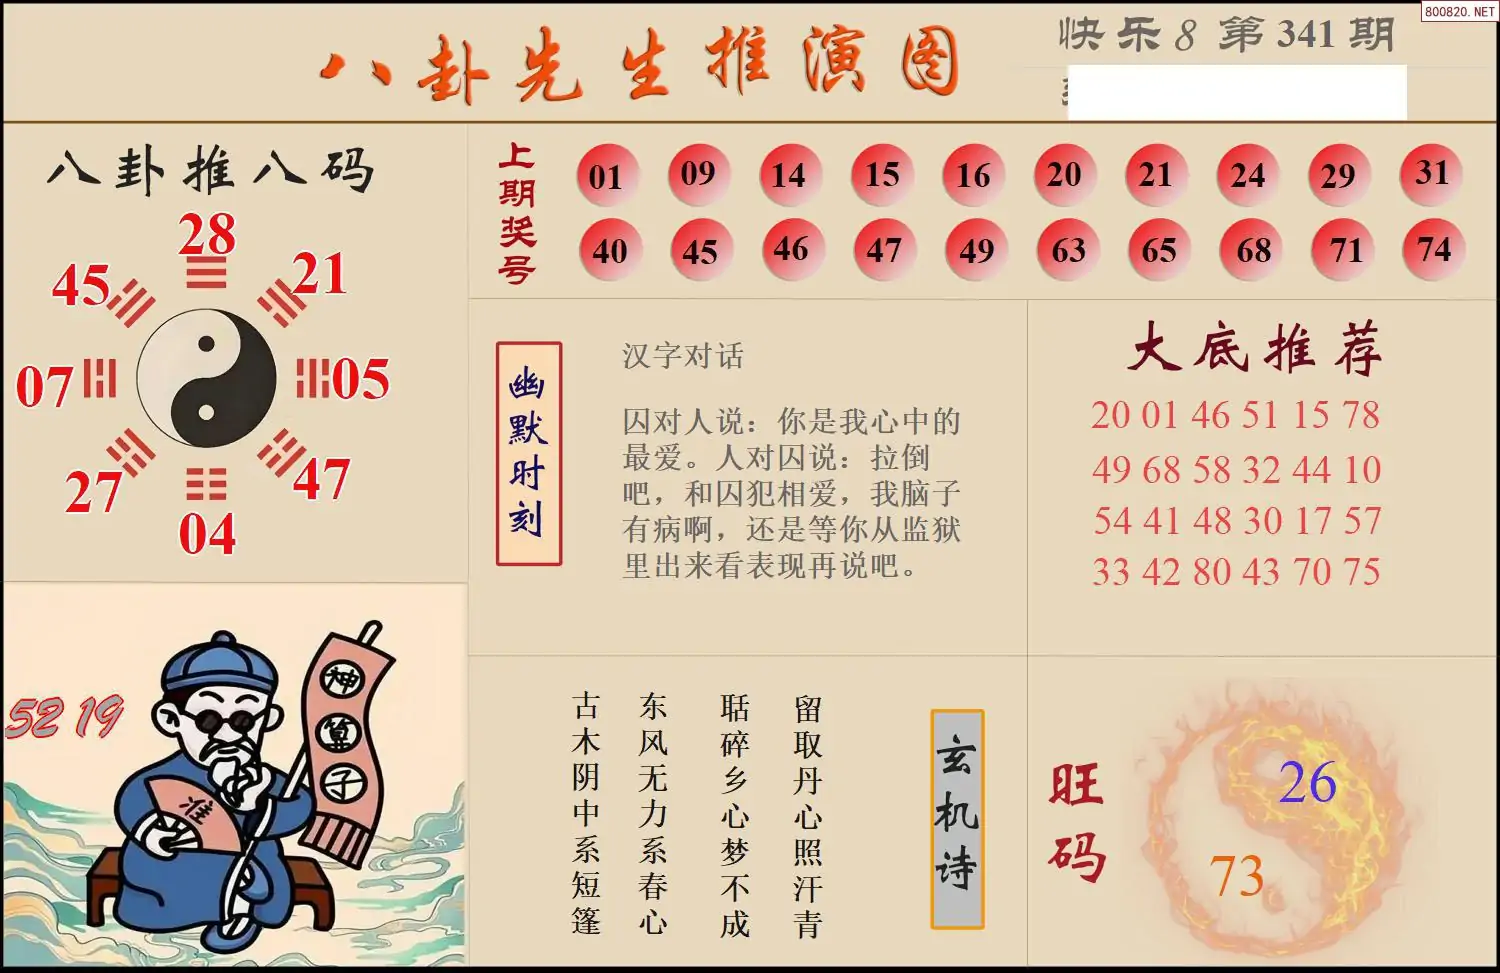 800820.NET
八卦先生推演图
快乐8第341期
八卦推八码
28
45
21
07
05
27
47
04
上期奖号
01 09 14 15 16 20 21 24 29 31
40 45 46 47 49 63 65 68 71 74
幽默时刻
汉字对话
囚对人说：你是我心中的
最爱。人对囚说：拉倒
吧，和囚犯相爱，我脑子
有病啊，还是等你从监狱
里出来看表现再说吧。
大底推荐
20 01 46 51 15 78
49 68 58 32 44 10
54 41 48 30 17 57
33 42 80 43 70 75
52 19
神算子
准
玄机诗
留取丹心照汗青
聒碎乡心梦不成
东风无力系春心
古木阴中系短篷
旺码
26
73